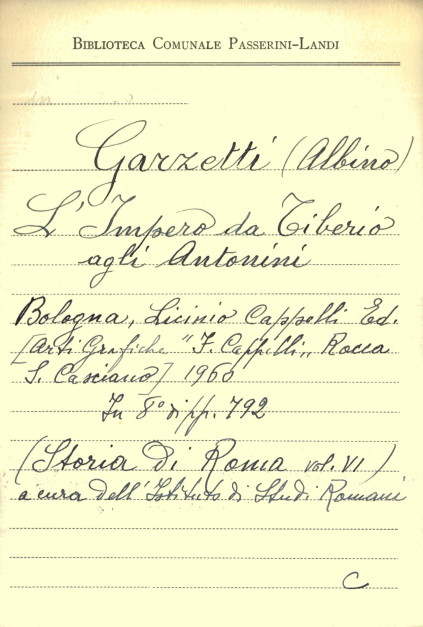 BIBLIOTECA COMUNALE PASSERINI-LANDI
Garzetti (Albino)
L'Impero da Tiberio
agli Antonini
Bologna, Licinio Cappelli Ed.
[Arti Grafiche "F. Cappelli„ Rocca
S. Casciano] 1960
In 8° di pp. 792
(Storia di Roma vol. VI)
a cura dell'Istituto di Studi Romani
C